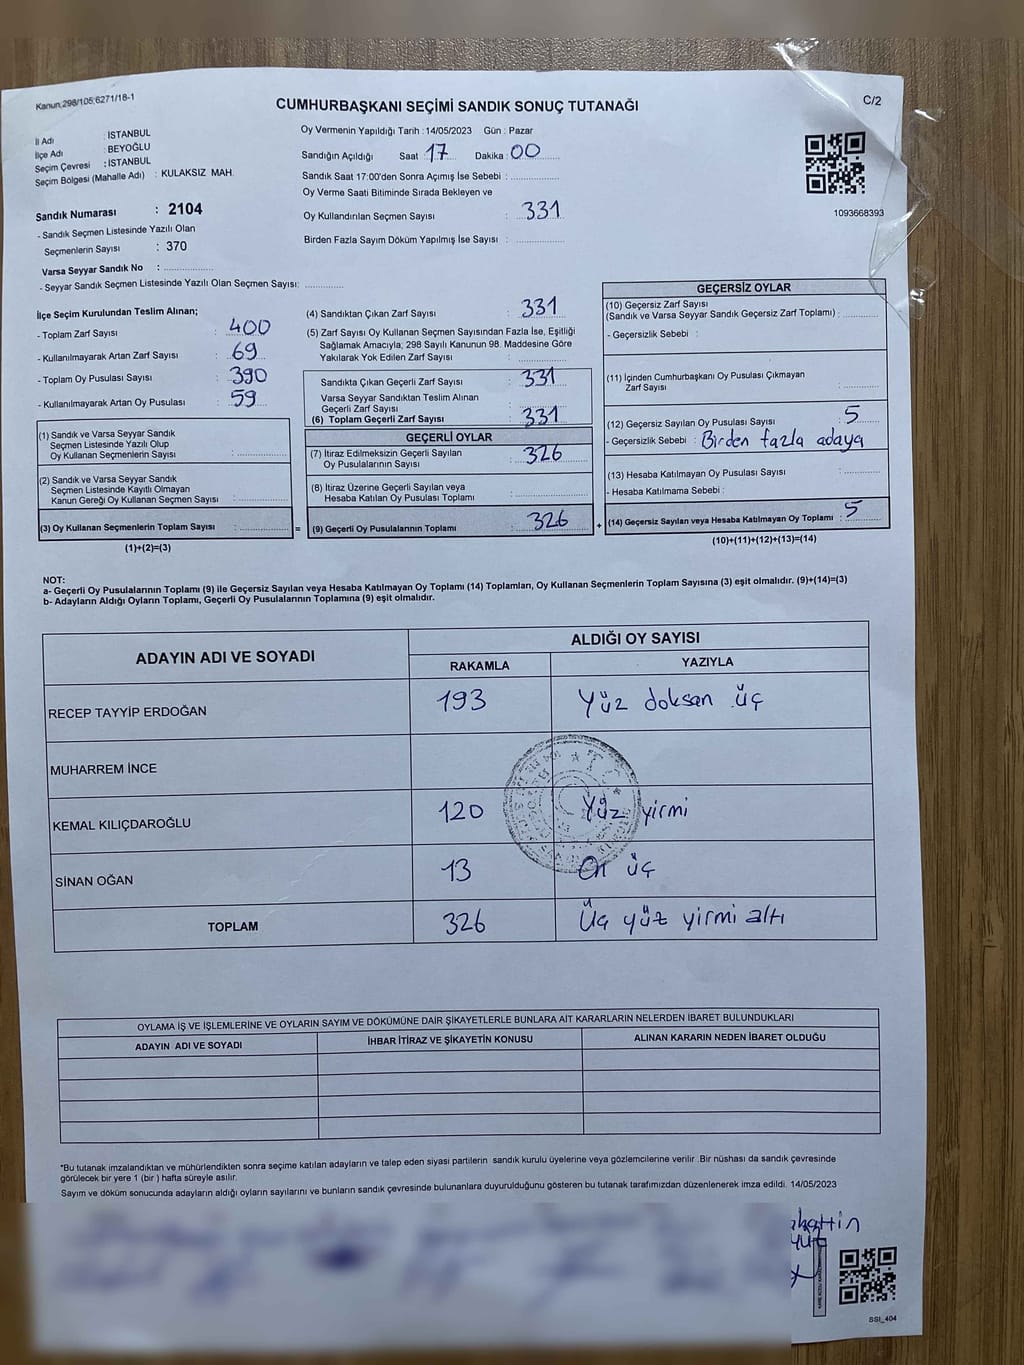 Kanun;298/105;6271/18-1
CUMHURBAŞKANI SEÇİMİ SANDIK SONUÇ TUTANAĞI
C/2
İl Adı : İSTANBUL
İlçe Adı : BEYOĞLU
Seçim Çevresi : İSTANBUL
Seçim Bölgesi (Mahalle Adı) : KULAKSIZ MAH.
Sandık Numarası : 2104
- Sandık Seçmen Listesinde Yazılı Olan
Seçmenlerin Sayısı : 370
Varsa Seyyar Sandık No : ..................
- Seyyar Sandık Seçmen Listesinde Yazılı Olan Seçmen Sayısı: ..............
Oy Vermenin Yapıldığı Tarih : 14/05/2023 Gün : Pazar
Sandığın Açıldığı Saat 17 Dakika : 00
Sandık Saat 17:00'den Sonra Açımış İse Sebebi : ..................
Oy Verme Saati Bitiminde Sırada Bekleyen ve
Oy Kullandırılan Seçmen Sayısı : 331
Birden Fazla Sayım Döküm Yapılmış İse Sayısı : ..................
1093668393
İlçe Seçim Kurulundan Teslim Alınan;
- Toplam Zarf Sayısı : 400
- Kullanılmayarak Artan Zarf Sayısı : 69
- Toplam Oy Pusulası Sayısı : 390
- Kullanılmayarak Artan Oy Pusulası : 59
(1) Sandık ve Varsa Seyyar Sandık
Seçmen Listesinde Yazılı Olup
Oy Kullanan Seçmenlerin Sayısı : ..............
(2) Sandık ve Varsa Seyyar Sandık
Seçmen Listesinde Kayıtlı Olmayan
Kanun Gereği Oy Kullanan Seçmen Sayısı : ..............
(3) Oy Kullanan Seçmenlerin Toplam Sayısı : ..............
(1)+(2)=(3)
=
(4) Sandıktan Çıkan Zarf Sayısı : 331
(5) Zarf Sayısı Oy Kullanan Seçmen Sayısından Fazla İse, Eşitliği
Sağlamak Amacıyla; 298 Sayılı Kanunun 98. Maddesine Göre
Yakılarak Yok Edilen Zarf Sayısı : ..............
Sandıkta Çıkan Geçerli Zarf Sayısı : 331
Varsa Seyyar Sandıktan Teslim Alınan
Geçerli Zarf Sayısı : ..............
(6) Toplam Geçerli Zarf Sayısı : 331
GEÇERLİ OYLAR
(7) İtiraz Edilmeksizin Geçerli Sayılan
Oy Pusulalarının Sayısı : 326
(8) İtiraz Üzerine Geçerli Sayılan veya
Hesaba Katılan Oy Pusulası Toplamı : ..............
(9) Geçerli Oy Pusulalarının Toplamı : 326
+
GEÇERSİZ OYLAR
(10) Geçersiz Zarf Sayısı
(Sandık ve Varsa Seyyar Sandık Geçersiz Zarf Toplamı) : ..............
- Geçersizlik Sebebi :
(11) İçinden Cumhurbaşkanı Oy Pusulası Çıkmayan
Zarf Sayısı : ..............
(12) Geçersiz Sayılan Oy Pusulası Sayısı : 5
- Geçersizlik Sebebi : Birden fazla adaya
(13) Hesaba Katılmayan Oy Pusulası Sayısı : ..............
- Hesaba Katılmama Sebebi :
(14) Geçersiz Sayılan veya Hesaba Katılmayan Oy Toplamı : 5
(10)+(11)+(12)+(13)=(14)
NOT:
a- Geçerli Oy Pusulalarının Toplamı (9) ile Geçersiz Sayılan veya Hesaba Katılmayan Oy Toplamı (14) Toplamları, Oy Kullanan Seçmenlerin Toplam Sayısına (3) eşit olmalıdır. (9)+(14)=(3)
b- Adayların Aldığı Oyların Toplamı, Geçerli Oy Pusulalarının Toplamına (9) eşit olmalıdır.
ADAYIN ADI VE SOYADI
ALDIĞI OY SAYISI
RAKAMLA YAZIYLA
RECEP TAYYİP ERDOĞAN 193 Yüz doksan üç
MUHARREM İNCE
KEMAL KILIÇDAROĞLU 120 Yüz yirmi
SİNAN OĞAN 13 On üç
TOPLAM 326 Üç yüz yirmi altı
OYLAMA İŞ VE İŞLEMLERİNE VE OYLARIN SAYIM VE DÖKÜMÜNE DAİR ŞİKAYETLERLE BUNLARA AİT KARARLARIN NELERDEN İBARET BULUNDUKLARI
ADAYIN ADI VE SOYADI İHBAR İTİRAZ VE ŞİKAYETİN KONUSU ALINAN KARARIN NEDEN İBARET OLDUĞU
*Bu tutanak imzalandıktan ve mühürlendikten sonra seçime katılan adayların ve talep eden siyasi partilerin sandık kurulu üyelerine veya gözlemcilerine verilir .Bir nüshası da sandık çevresinde
görülecek bir yere 1 (bir ) hafta süreyle asılır.
Sayım ve döküm sonucunda adayların aldığı oyların sayılarını ve bunların sandık çevresinde bulunanlara duyurulduğunu gösteren bu tutanak tarafımızdan düzenlenerek imza edildi. 14/05/2023
SSI_404